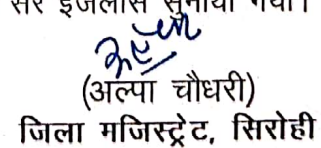 सरे इजलास सुनाया गया।
(अल्पा चौधरी)
जिला मजिस्ट्रेट, सिरोही